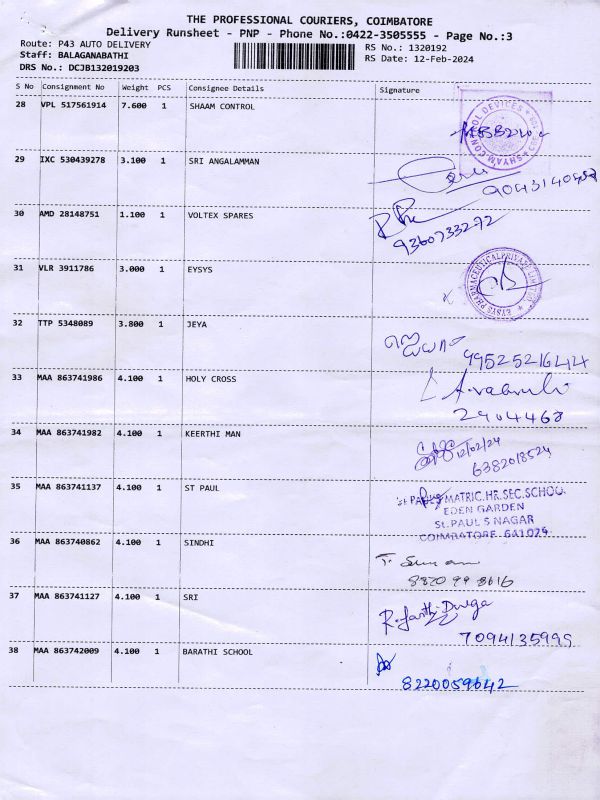 THE PROFESSIONAL COURIERS, COIMBATORE
Delivery Runsheet - PNP - Phone No.:0422-3505555 - Page No.:3
Route: P43 AUTO DELIVERY RS No.: 1320192
Staff: BALAGANABATHI RS Date: 12-Feb-2024
DRS No.: DCJB132019203
S No Consignment No Weight PCS Consignee Details Signature
28 VPL 517561914 7.600 1 SHAAM CONTROL
29 IXC 530439278 3.100 1 SRI ANGALAMMAN
30 AMD 28148751 1.100 1 VOLTEX SPARES
9360733272
31 VLR 3911786 3.000 1 EYSYS
EYSYS PHARMACEUTICAL PRIVATE LIMITED
32 TTP 5348089 3.800 1 JEYA
9952521644
33 MAA 863741986 4.100 1 HOLY CROSS
2904468
34 MAA 863741982 4.100 1 KEERTHI MAN
12/02/24
6382018524
35 MAA 863741137 4.100 1 ST PAUL
St. PAUL'S MATRIC.HR.SEC.SCHOOL
EDEN GARDEN
St. PAUL'S NAGAR
COIMBATORE 641029.
36 MAA 863740862 4.100 1 SINDHI
8820 99 8616
37 MAA 863741127 4.100 1 SRI
7094135999
38 MAA 863742009 4.100 1 BARATHI SCHOOL
8220059642